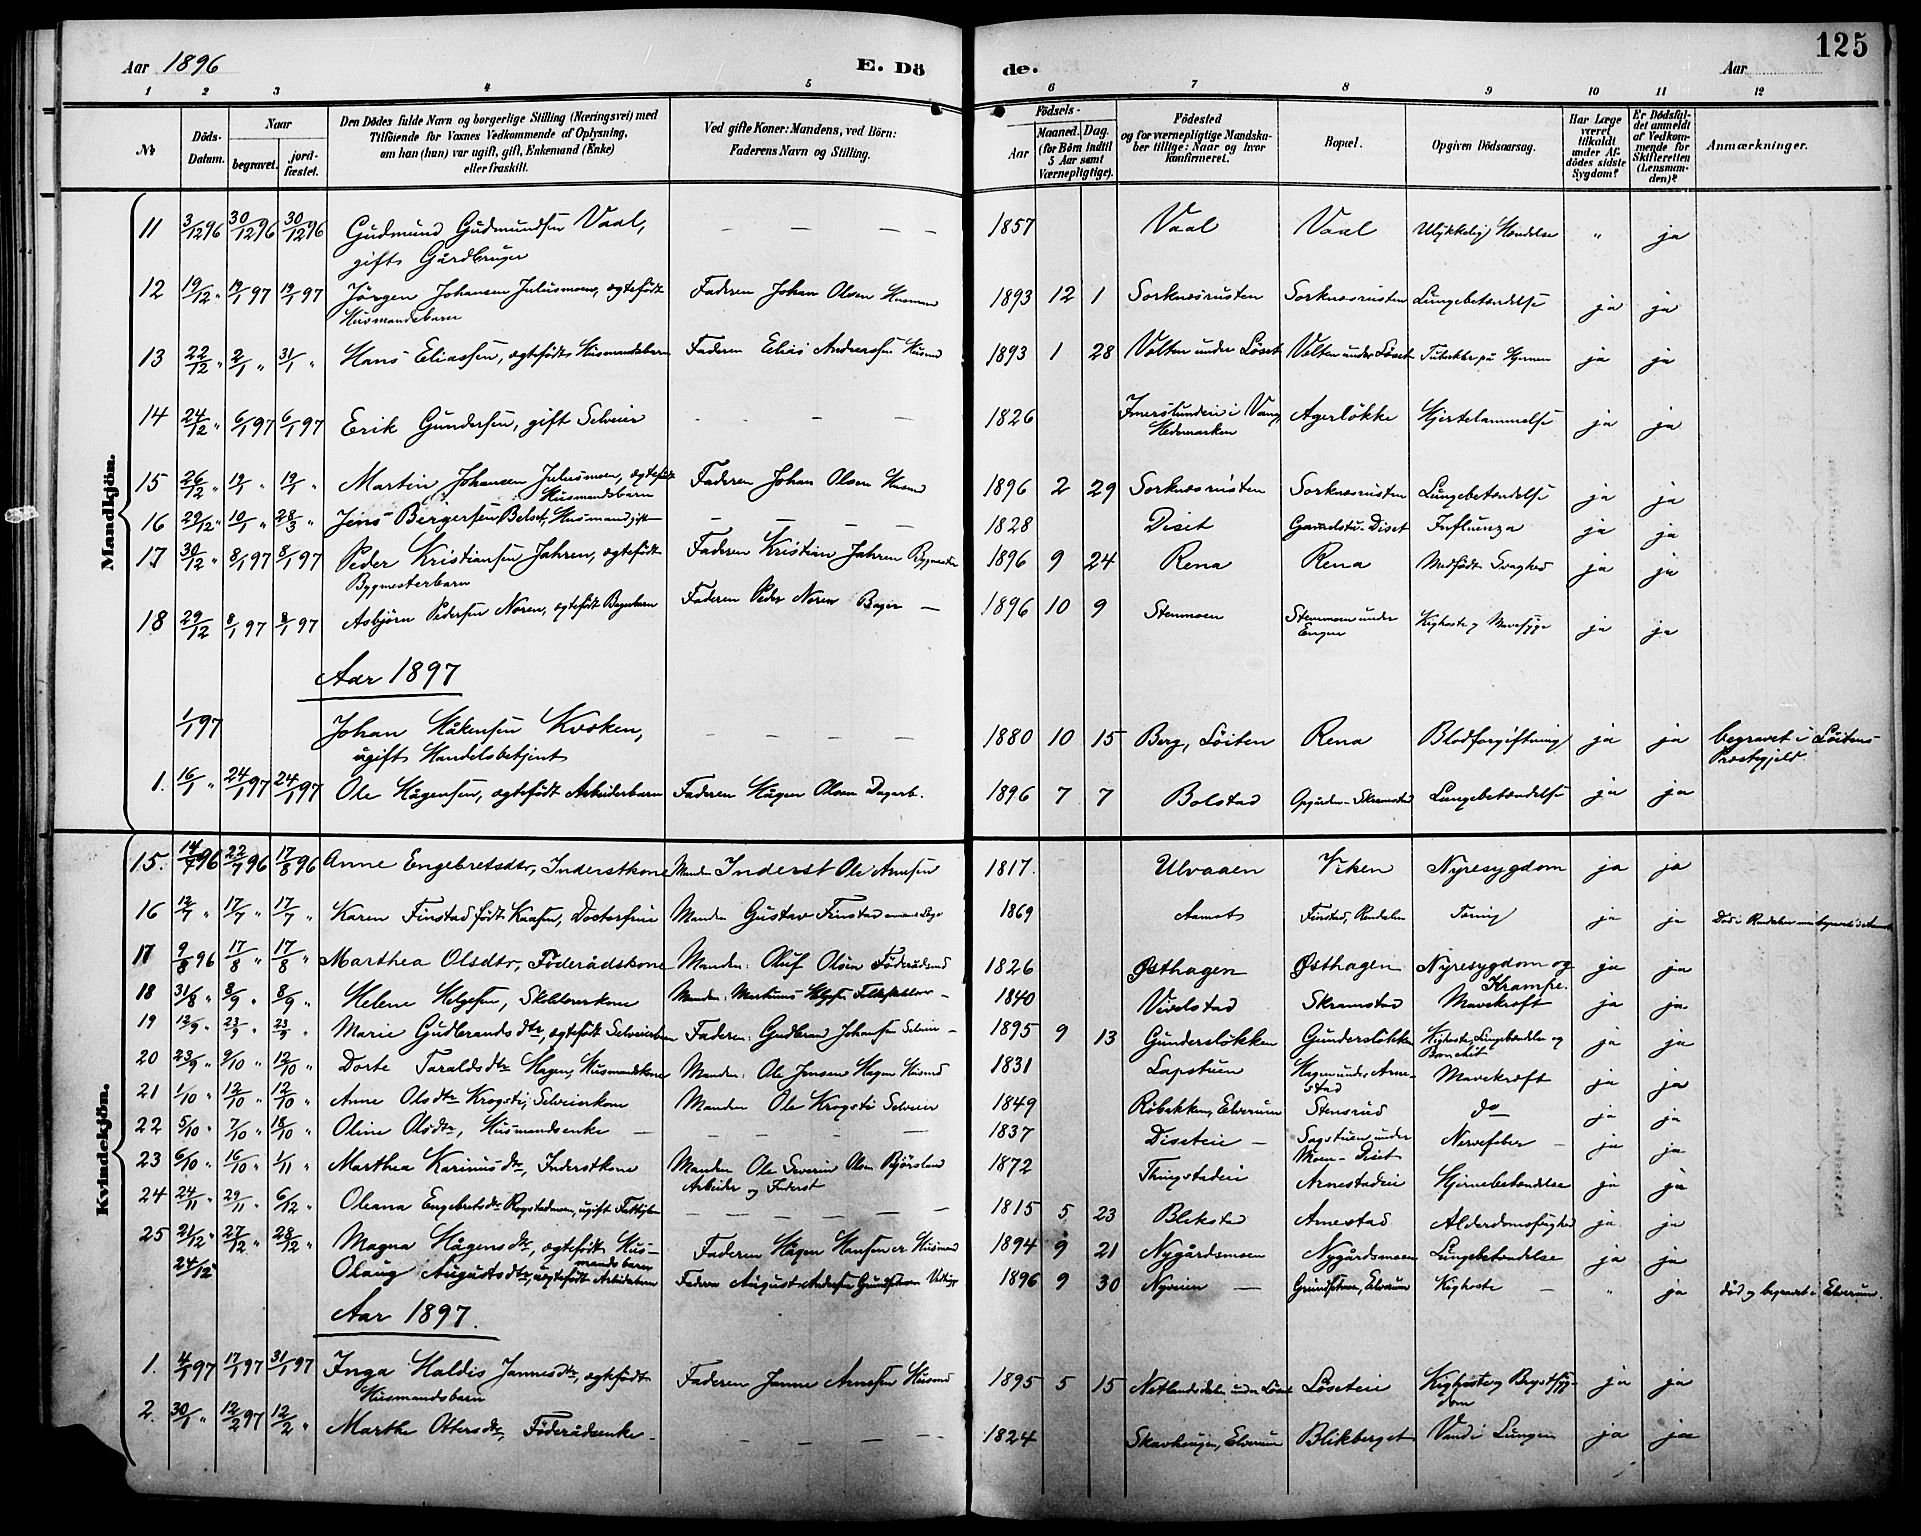 125
Aar 1896
E. Dö
de.
Aar
1 2 3 4 5 6 7 8 9 10 11 12
№
Döds-Datum.
Naar
begravet.
jord-fæstet.
Den Dödes fulde Navn og borgerlige Stilling (Næringsvei) med
Tilföiende for Voxnes Vedkommende af Oplysning,
om han (hun) var ugift, gift, Enkemand (Enke)
eller fraskilt.
Ved gifte Koner: Mandens, ved Börn:
Faderens Navn og Stilling.
Födsels-
Aar
Maaned. Dag.
(for Börn indtil
5 Aar samt
Værnepligtige).
Födested
og for værnepligtige Mandska-
ber tillige: Naar og hvor
konfirmeret.
Bopæl.
Opgiven Dödsaarsag.
Har Læge
været
tilkaldt
under Af-
dödes sidste
Sygdom?
Er Dödsfal-
det anmeldt
af Vedkom-
mende for
Skifteretten
(Lensman-
den)?
Anmærkninger.
Mandkjön.
11 3/12 96 30/12 96 30/12 96 Gudmund Gudmundsen Vaal, — — — — 1857 Vaal Vaal Ulykkelig Hændelse " ja
gift Gårdbruger
12 19/12 " 19/1 97 19/1 97 Jörgen Johansen Juliusmoen, ægtefödt Faderen Johan Olsen Husmand 1893 12 1 Sorknæsrusten Sorknæsrusten Lungebetændelse ja ja
Husmandsbarn
13 22/12 " 2/1 " 31/1 " Hans Eliassen, ægtefödt Husmandsbarn Faderen Elias Andreassen Husmd 1893 1 28 Volten under Löset Volten under Löset Tuberkler på Hjernen ja ja
14 24/12 " 6/1 97 6/1 97 Erik Gundersen, gift Selveier - - — 1826 i Vang Agerlökke Hjertelammelse ja ja
Hedemarken
15 26/12 " 19/1 " 19/1 " Martin Johansen Juliusmoen, ægtefödt Faderen Johan Olsen Husmd 1896 2 29 Sorknæsrusten Sorknæsrusten Lungebetændelse ja ja
Husmandsbarn
16 29/12 " 10/1 " 28/3 " Jens Bergersen Belset, Husmand gift — — — — 1828 Diset Gamlstu-Diset Influenza ja ja
17 30/12 " 8/1 97 8/1 97 Peder Kristiansen Jahren, ægtefödt Faderen Kristian Jahren Bygmester 1896 9 24 Rena Rena Medfödt Svaghed ja ja
Bygmesterbarn
18 29/12 8/1 97 8/1 97 Asbjörn Pedersen Noren, ægtefödt Bagerbarn Faderen Peder Noren Bager — 1896 10 9 Stenmoen Stenmoen under Kighoste og Mavesyge ja ja
Engen
Aar 1897
1/1 97 Johan Håkensen Kvæken, — — — — 1880 10 15 Berg, Löiten Rena Blodforgiftning ja ja begravet i Löitens
ugift Handelsbetjent Præstegjeld.
1. 16/1 " 24/1 97 24/1 97 Ole Hågensen, ægtefödt Arbeiderbarn Faderen Hågen Olsen Dagarb. 1896 7 7 Bolstad Opgården-Skramstad Lungebetændelse ja ja
Kvindekjön.
15. 14/7 96 22/7 96 17/8 96 Anne Engebretsdtr, Inderstkone Manden Inderst Ole Arnesen 1817 Ulvaaen Viken Nyresygdom ja ja
16 12/7 " 17/7 " 17/7 " Karen Finstad födt Kaasen, Doctorfrue Manden Gustav Finstad 1869 Aamot Finstad, Rendalen Tæring ja ja Död i Rendalen men begravet i Aamot
17 9/8 96 17/8 " 17/8 " Marthea Olsdtr, Föderådskone Manden: Oluf Olsen Föderådsmd 1826 Østhagen Østhagen Nyresygdom og ja ja
Krampe.
18 31/8 " 8/9 " 8/9 " Helene Helgesen, Skolelærerkone Manden: Markus Helgesen — 1840 Vivelstad Skramstad Mavekræft ja ja
19 12/9 " 23/9 " 23/9 " Marie Gudbrandsdtr, ægtefödt Selveierbarn Faderen: Gudbrand Johansen Selveier — 1895 9 13 Gunderslökken Gunderslökken Kighoste, Lungebetændelse og ja ja
Bronchit
20 23/9 " 9/10 " 12/10 " Dorte Taraldsdtr Hagen, Husmandskone Manden: Ole Jensen Hagen Husmd 1831 Lapstuen Hagen under Arne- Mavekræft ja ja
stad
21 1/10 " 12/10 " 12/10 " Anne Olsdtr Krogsti, Selveierkone Manden Ole Krogsti Selveier 1849 Röbækken, Elverum Stensrud do ja ja
22 5/10 " 7/10 " 18/10 " Oline Olsdtr, Husmandsenke — — — — — 1837 Diseteie — Sagstuen under Nervefeber — ja ja
Moen-Diset
23 6/10 " 16/10 " 1/11 " Marthea Karinusdtr, Inderstkone Manden Ole Severin Olsen 1872 Thingstadeie Arnestadeie Hjernebetændelse ja ja
Arbeider og Inderst
24 24/11 " 29/11 " 6/12 " Oleana Engebretsdtr Rogstadmoen, ugift Fattiglem — — — — 1815 5 23 Blikstad Arnestad Alderdomssvaghed ja ja
25 21/12 " 27/12 " 28/12 " Magna Hågensdtr, ægtefödt Hus- Faderen Hågen Hansen Husmand 1894 9 21 Nygårdsmoen Nygårdsmoen Lungebetændelse ja ja
mandsbarn
24/12 Olaug Augustsdtr, uægtefödt Arbeiderbarn Faderen August Andersen 1896 9 30 Nyveien — Grundsetmoen, Elverum Kighoste — " ja död og begravet i Elverum.
Aar 1897.
1. 4/1 97 17/1 97 31/1 97 Inga Haldis Jannesdtr, ægtefödt Faderen Janne Arnesen Husmd 1895 5 15 under Löset Löseteie Kighoste og Brystsyg- ja ja
Husmandsbarn dom
2. 30/1 " 12/2 97 12/2 " Marthe Ottersdtr, Föderådsenke — — — — 1824 Skavhougen, Elverum Blikberget Vand i Lungen ja ja